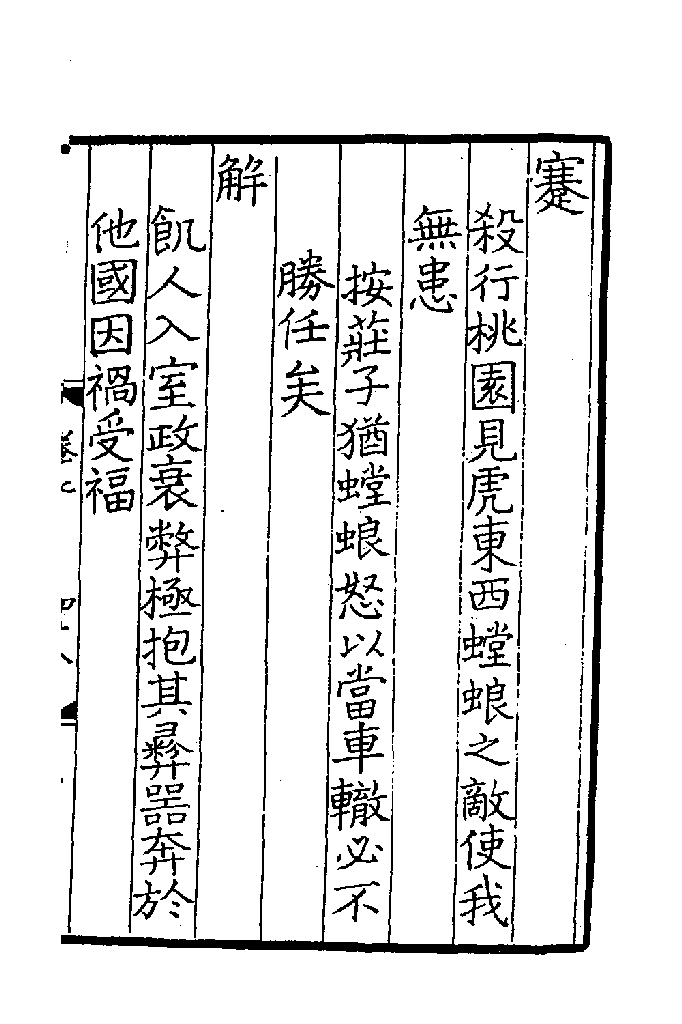 蹇
殺行桃園見虎東西螳蜋之敵使我
無患
按莊子猶螳蜋怒以當車轍必不
勝任矣
解
飢人入室政衰弊極抱其彝器奔於
他國因禍受福